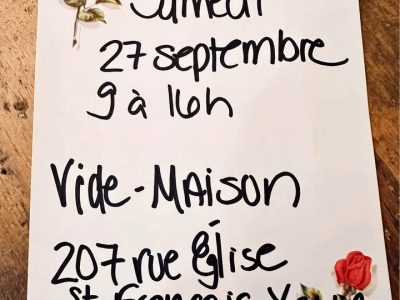 Samedi
27 septembre
9 à 16h
Vide-Maison
207 rue Église
St François X